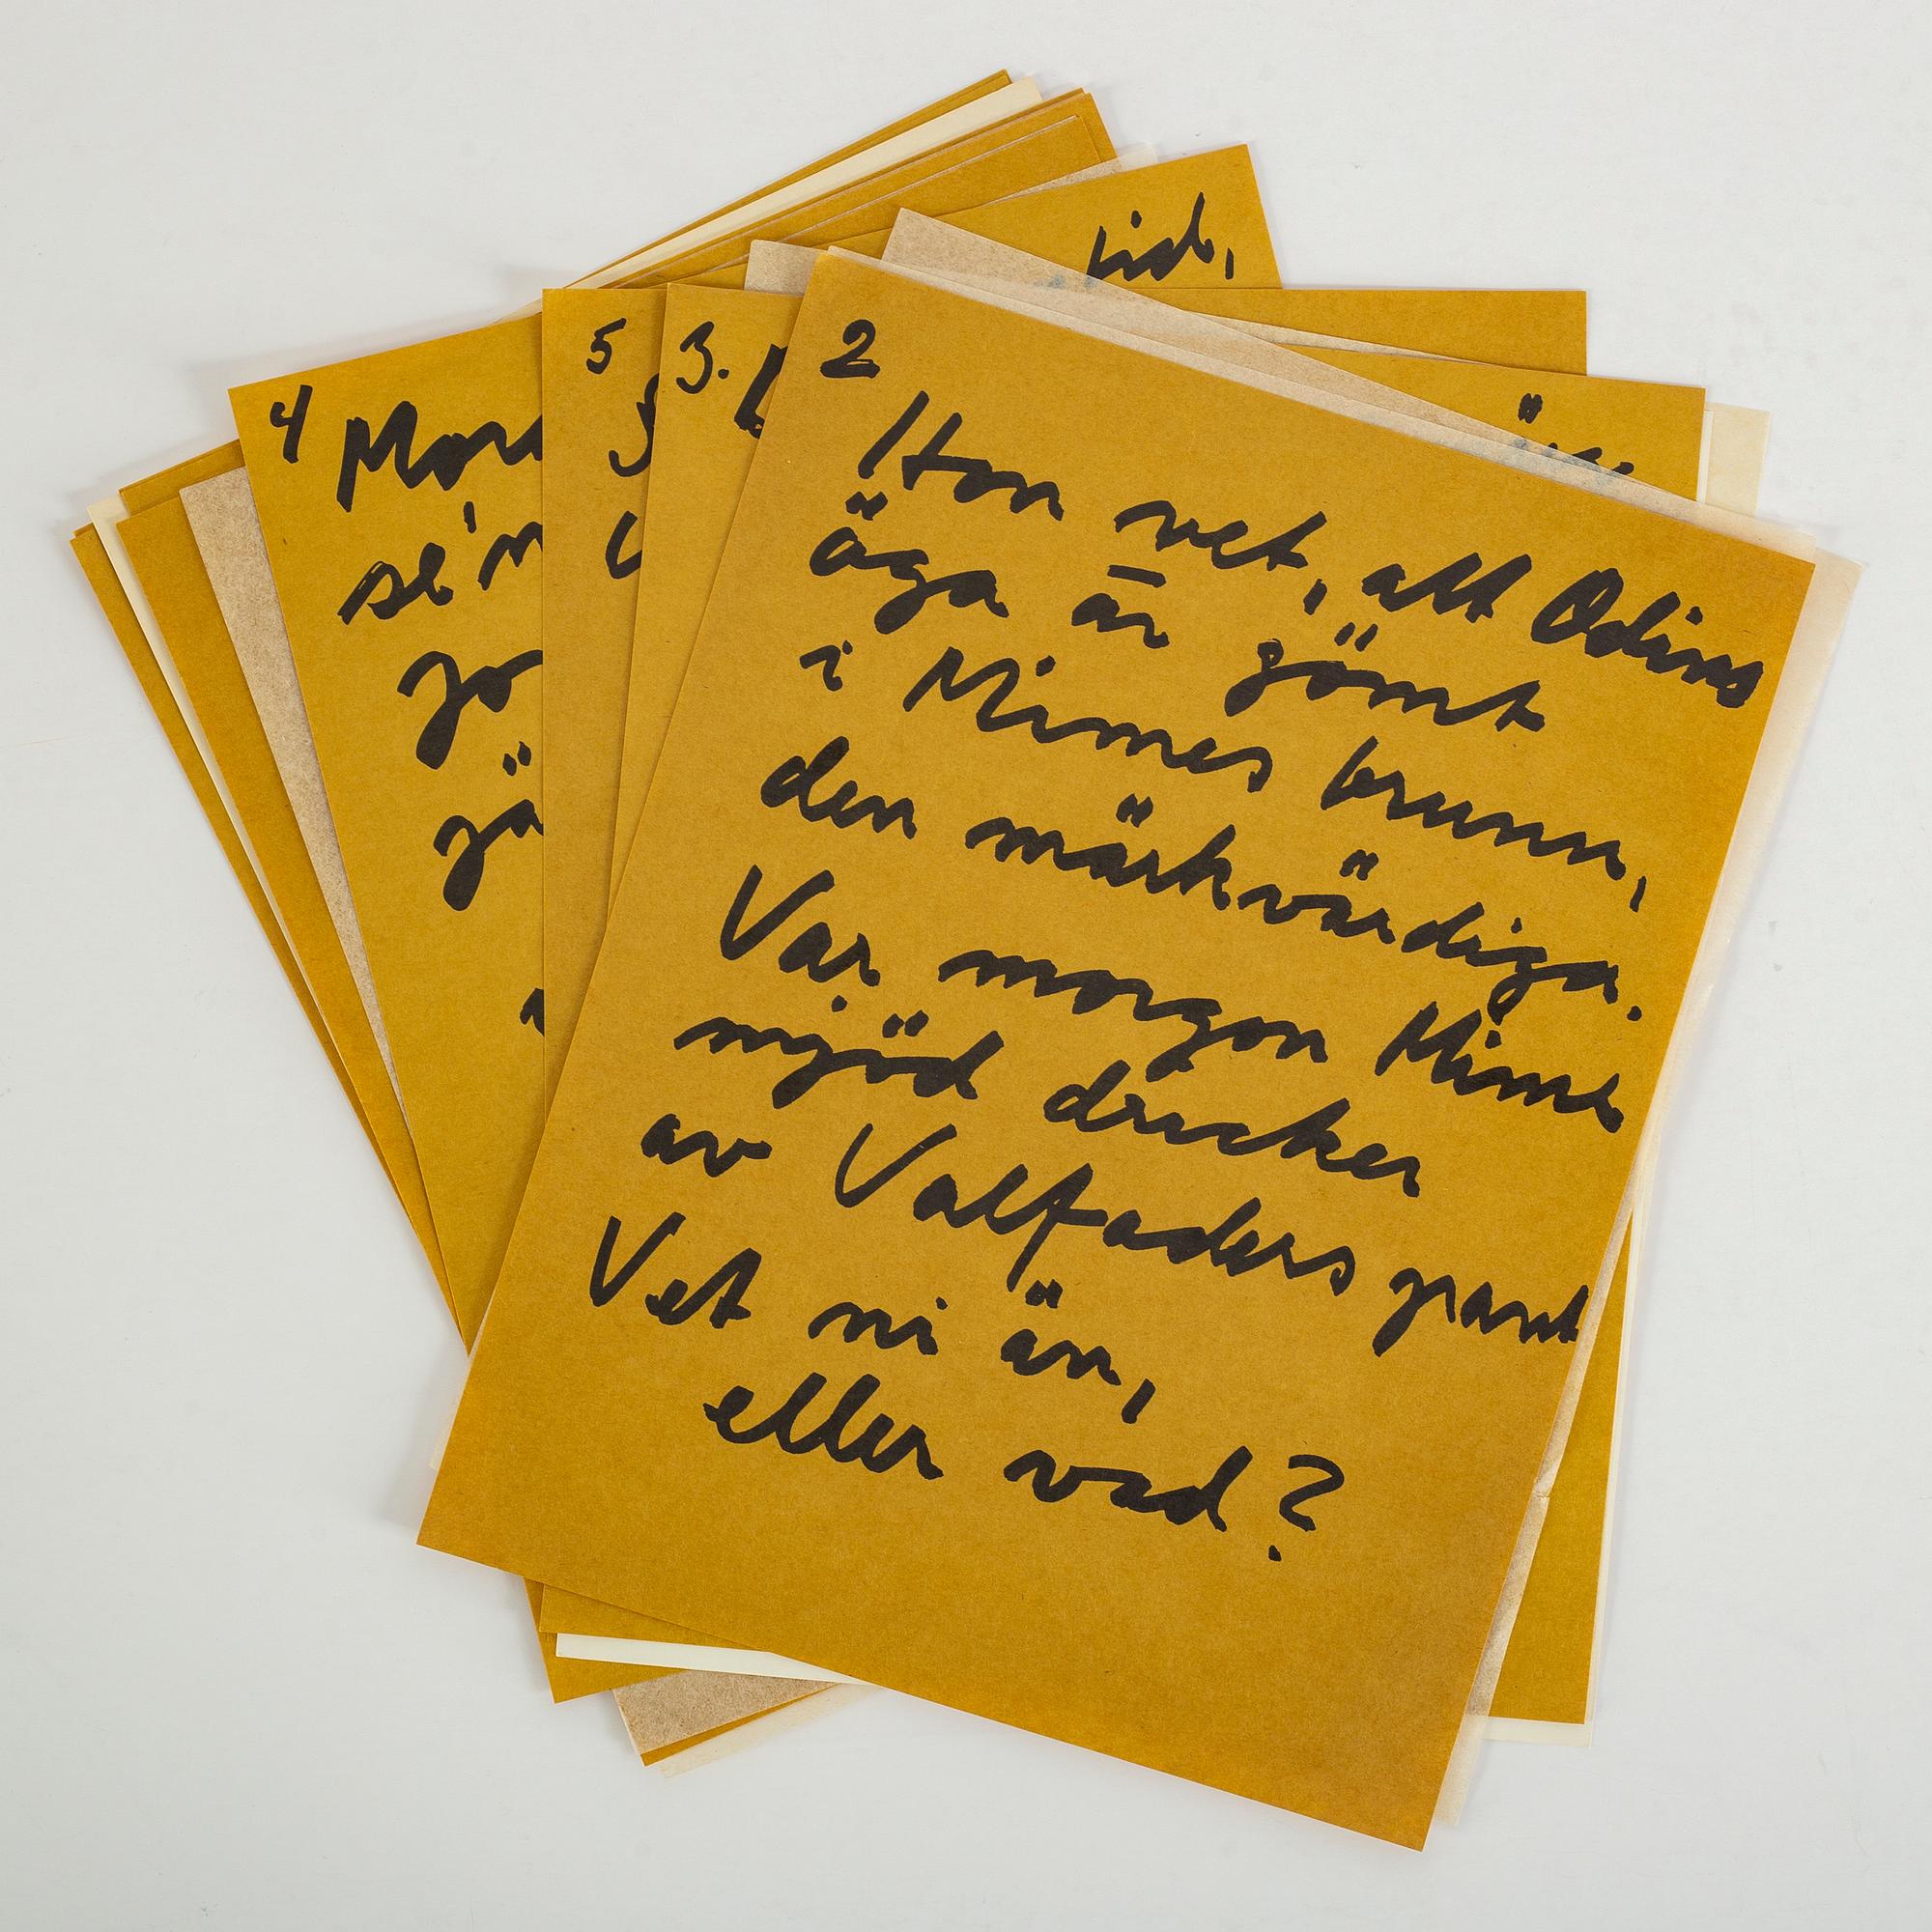 2
Hon vet, att Odins
öga är gömt
i Mimes brunn,
den märkvärdiga.
Var morgon Mime
mjöd dricker
av Valfaders pant
Vet ni än,
eller vad?
3.
5
4